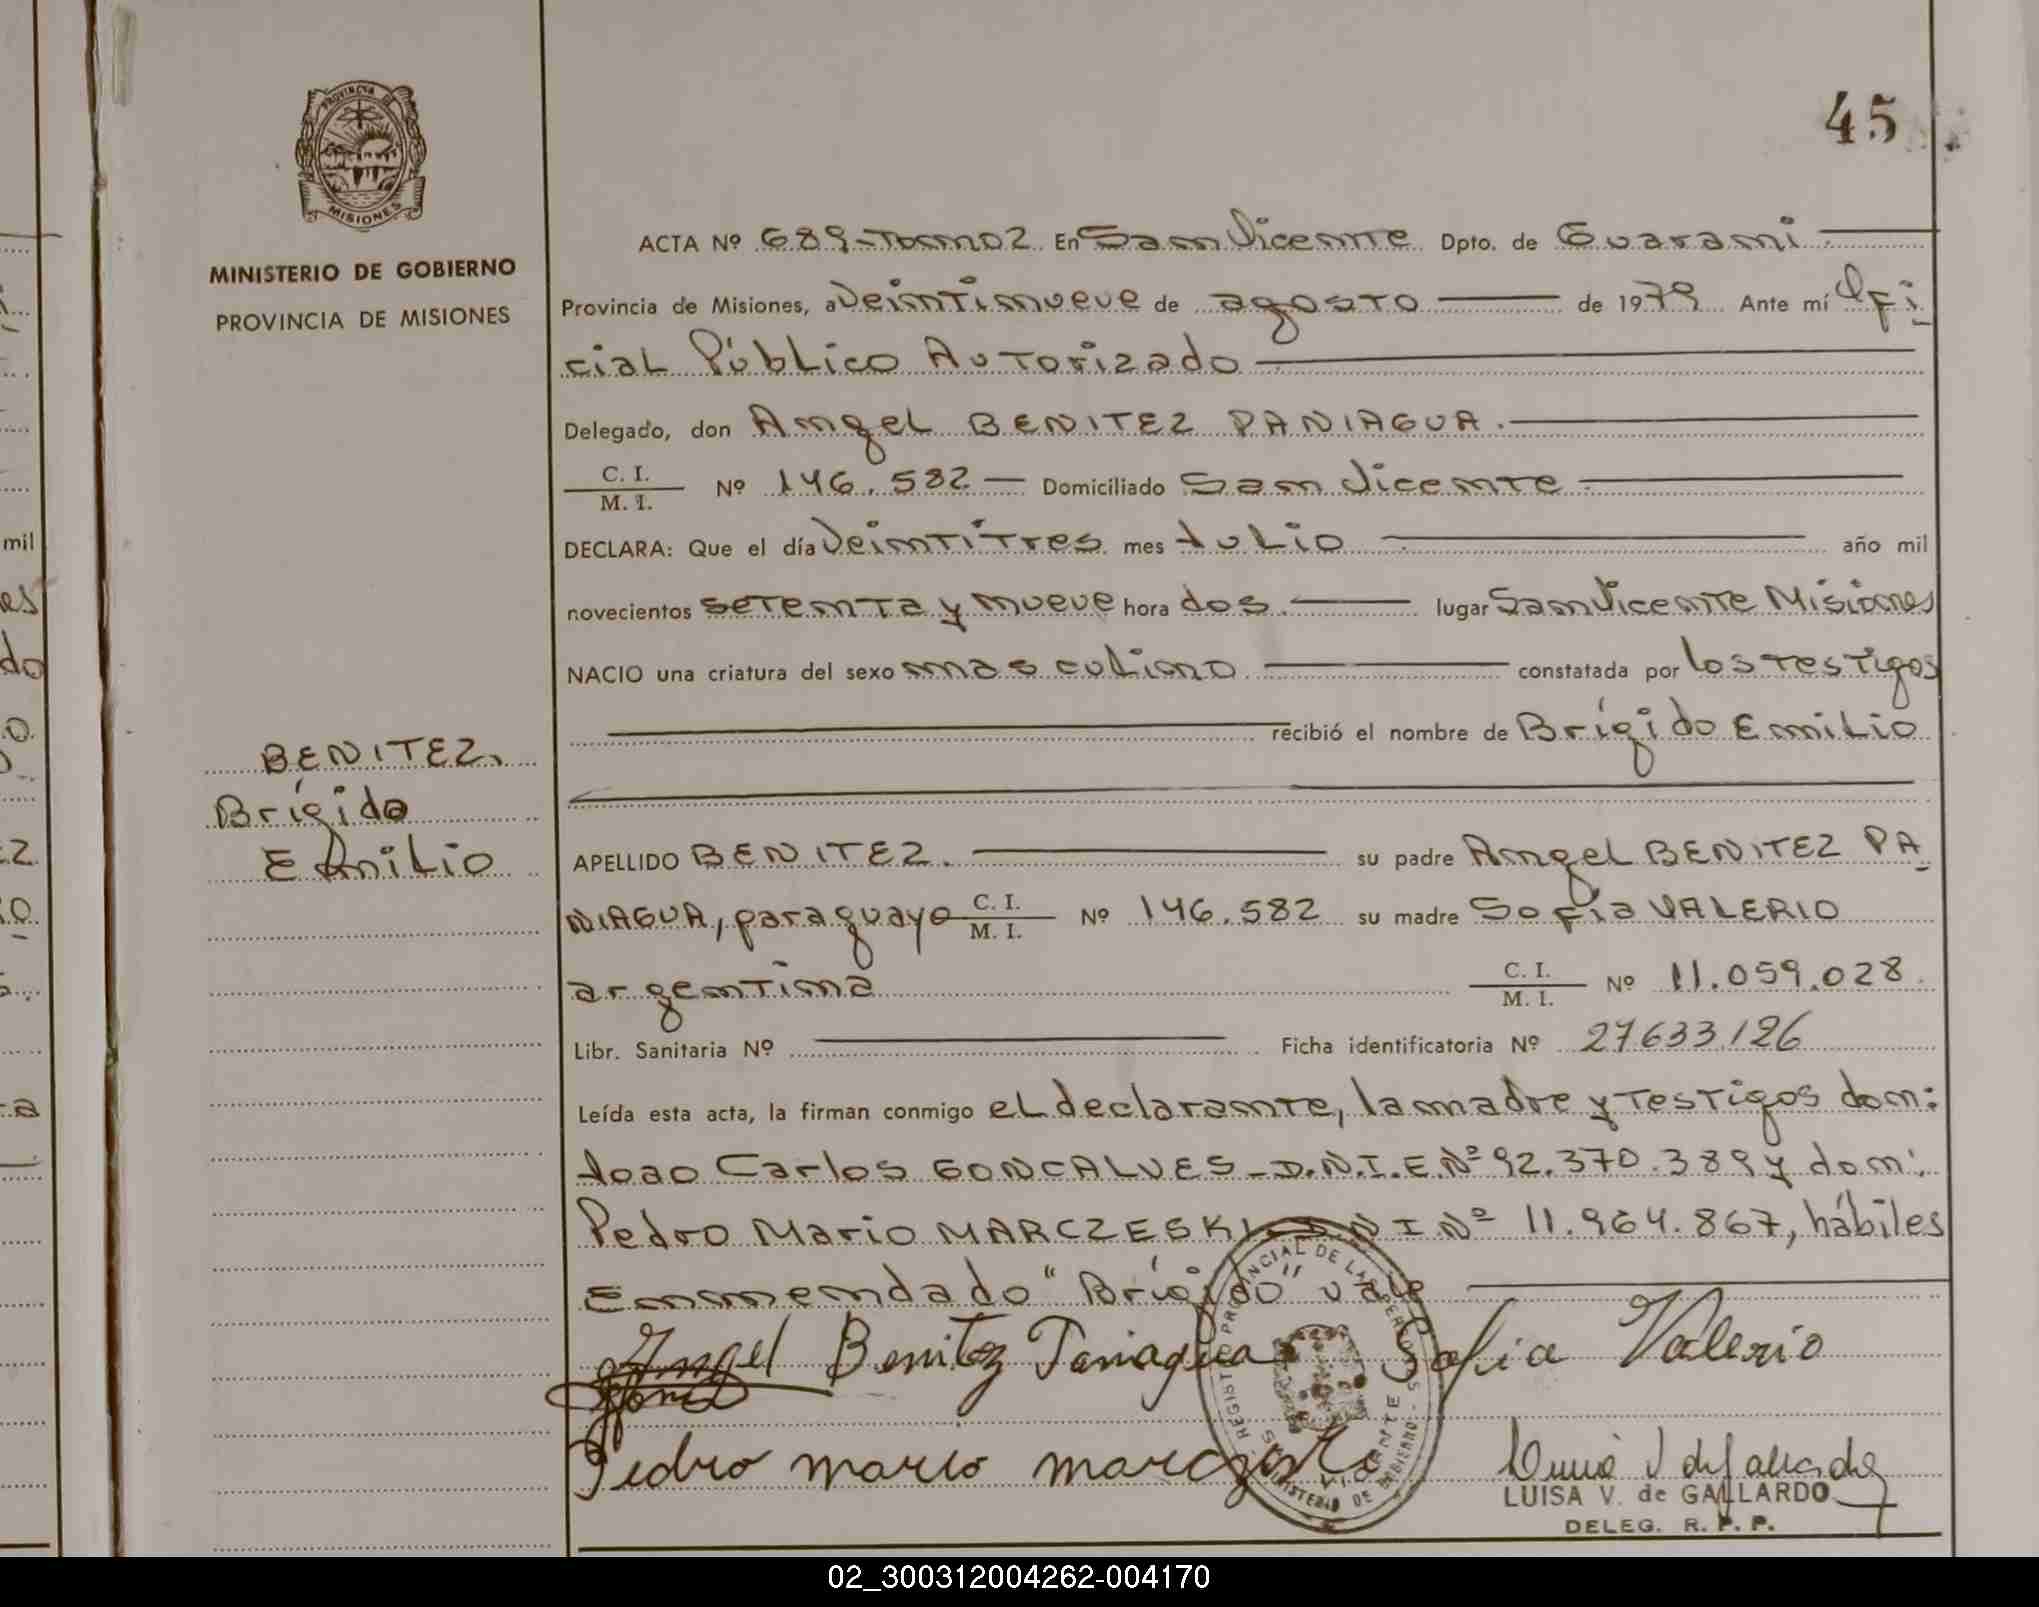 PROVINCIA DE
MISIONES
MINISTERIO DE GOBIERNO
PROVINCIA DE MISIONES
45
ACTA Nº 689-Tomo 2 En San Vicente Dpto. de Guarani
Provincia de Misiones, a veintinueve de agosto de 1979 Ante mí Ofi
cial Público Autorizado
Delegado, don Angel BENITEZ PANIAGUA.
C. I. / M. I. Nº 146.582 — Domiciliado San Vicente
DECLARA: Que el día veintitres mes Julio año mil
novecientos setenta y nueve hora dos. lugar San Vicente Misiones
NACIO una criatura del sexo masculino constatada por los testigos
recibió el nombre de Brígido Emilio
BENITEZ,
Brígido
Emilio
APELLIDO BENITEZ. su padre Angel BENITEZ PA
NIAGUA, paraguayo C. I. / M. I. Nº 146.582 su madre Sofía VALERIO
argentina C. I. / M. I. Nº 11.059.028.
Libr. Sanitaria Nº Ficha identificatoria Nº 27633126
Leída esta acta, la firman conmigo el declarante, la madre y testigos don:
Joao Carlos GONCALVES - D.N.I.E. Nº 92.370.389 y don:
Pedro Mario MARCZESKI - D N I Nº 11.964.867, hábiles
Enmendado "Brígido" vale
Angel Benitez Paniagua Sofia Valerio
Pedro mario
REGISTRO PROVINCIAL DE LAS PERSONAS
MINISTERIO DE GOBIERNO
LUISA V. de GALLARDO
DELEG. R. P. P.
02_300312004262-004170